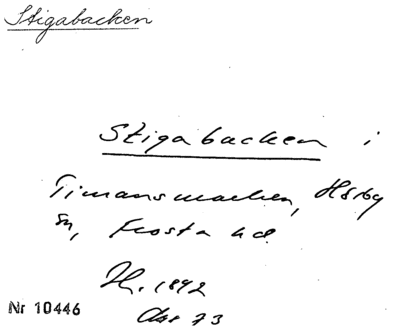 Stigabacken
Stigabacken i
Timansmarken, Hörby
sn, Frosta hd.
H. 1892
Nr 10446
73